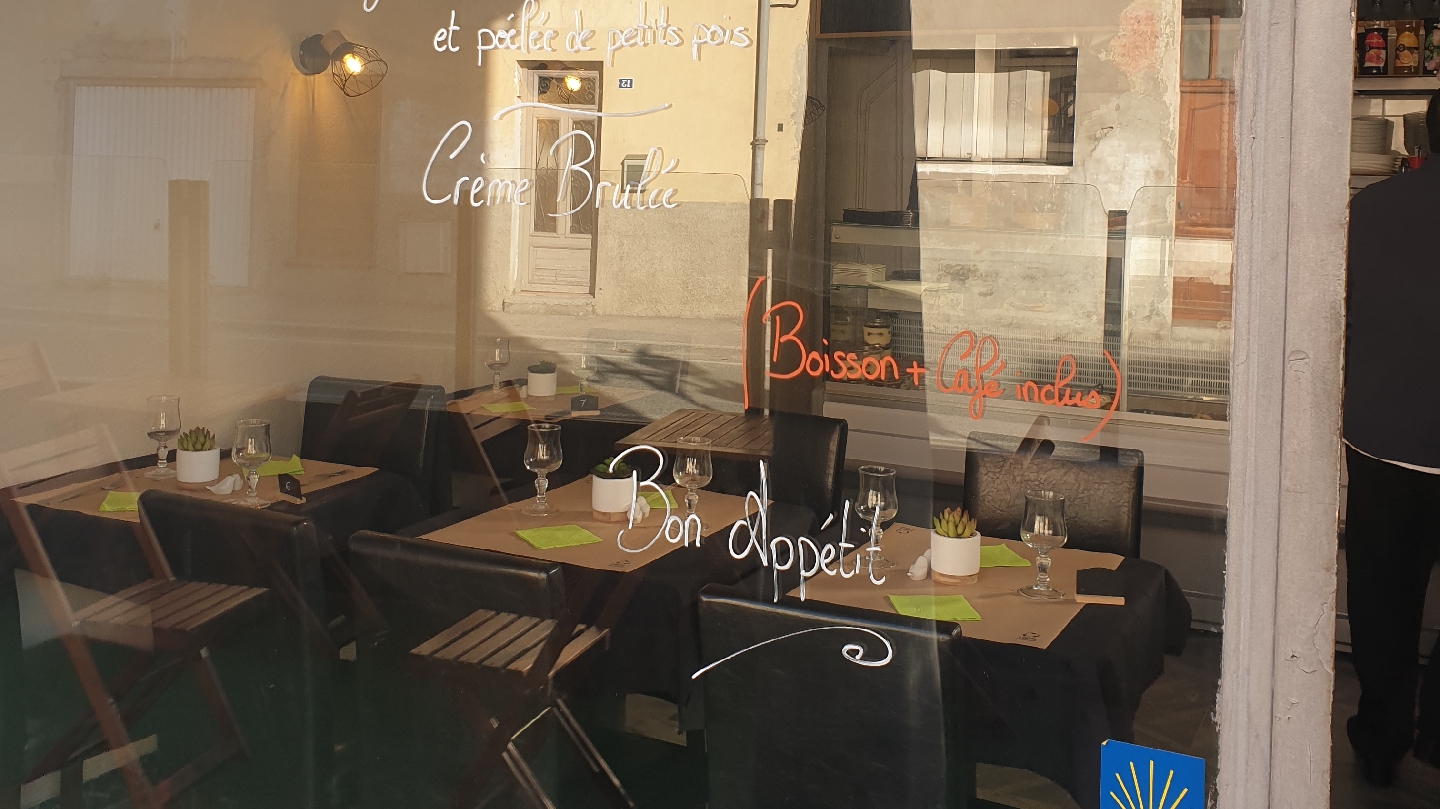 et poêlée de petits pois
Crème Brulée
(Boisson + Café inclus)
Bon Appétit
7
6